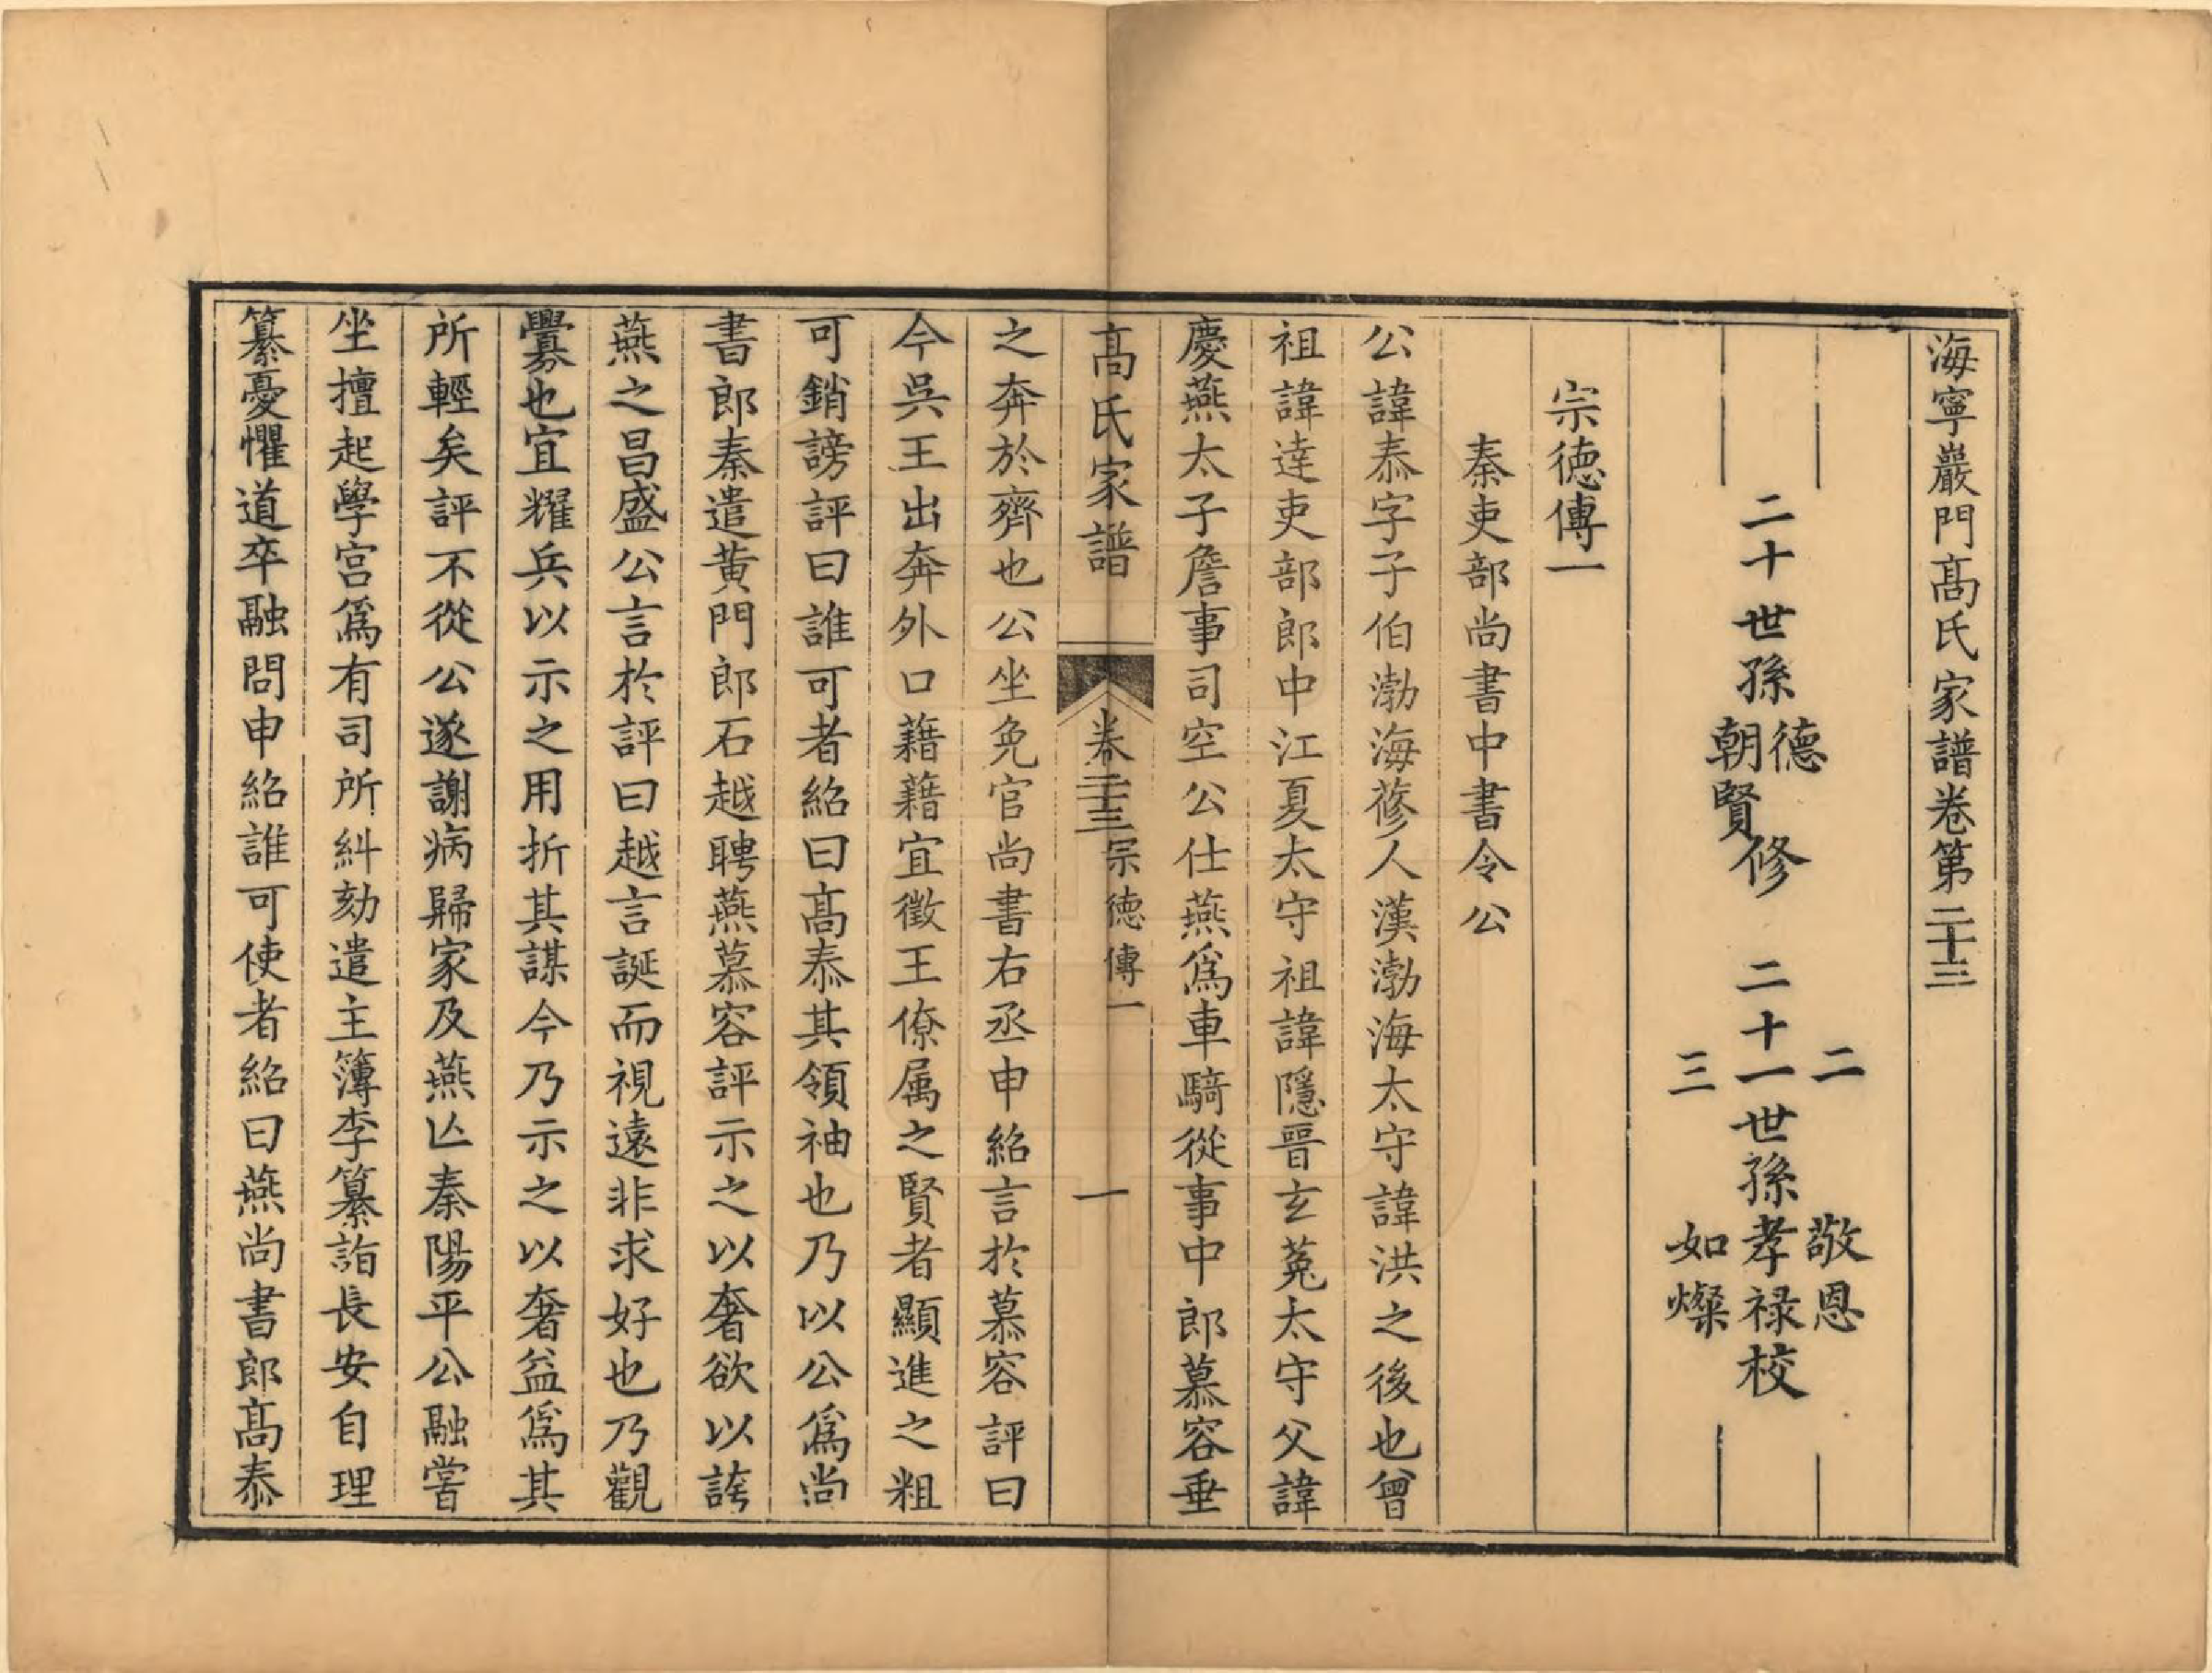 海寧巖門髙氏家譜卷第二十三
二十世孫德朝賢修　二十一世孫敬恩二孝祿如燦三校
宗德傳一
秦吏部尚書中書令公
公諱泰字子伯渤海蓚人漢渤海太守諱洪之後也曾
祖諱達吏部郎中江夏太守祖諱隱晉玄菟太守父諱
慶燕太子詹事司空公仕燕爲車騎從事中郎慕容垂
髙氏家譜　卷二十三 宗德傳一　一
之奔於齊也公坐免官尚書右丞申紹言於慕容評曰
今吳王出奔外口藉藉宜徵王僚属之賢者顯進之粗
可銷謗評曰誰可者紹曰髙泰其領袖也乃以公爲尚
書郎秦遣黄門郎石越聘燕慕容評示之以奢欲以誇
燕之昌盛公言於評曰越言誕而視遠非求好也乃觀
釁也宜耀兵以示之用折其謀今乃示之以奢益爲其
所輕矣評不從公遂謝病歸家及燕亾秦陽平公融嘗
坐擅起學宫爲有司所糾劾遣主簿李纂詣長安自理
纂憂懼道卒融問申紹誰可使者紹曰燕尚書郎髙泰